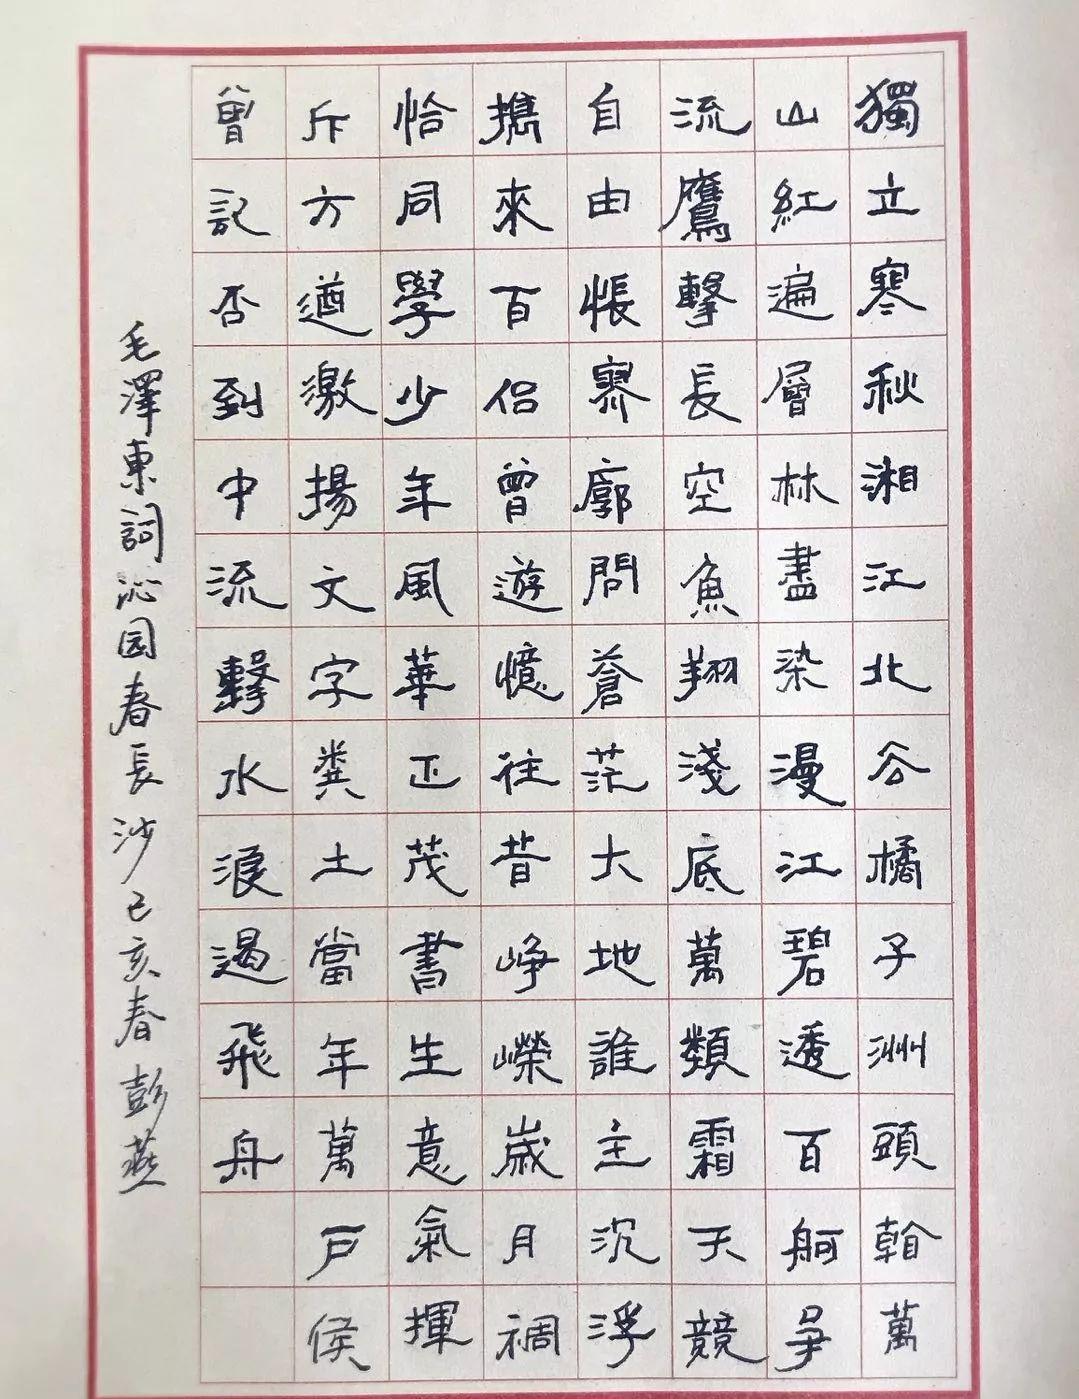 獨立寒秋湘江北去橘子洲頭看萬
山紅遍層林盡染漫江碧透百舸爭
流鷹擊長空魚翔淺底萬類霜天競
自由悵寥廓問蒼茫大地誰主沉浮
攜來百侶曾遊憶往昔崢嶸歲月稠
恰同學少年風華正茂書生意氣揮
斥方遒激揚文字糞土當年萬戶侯
曾記否到中流擊水浪遏飛舟
毛澤東詞沁园春長沙己亥春彭燕